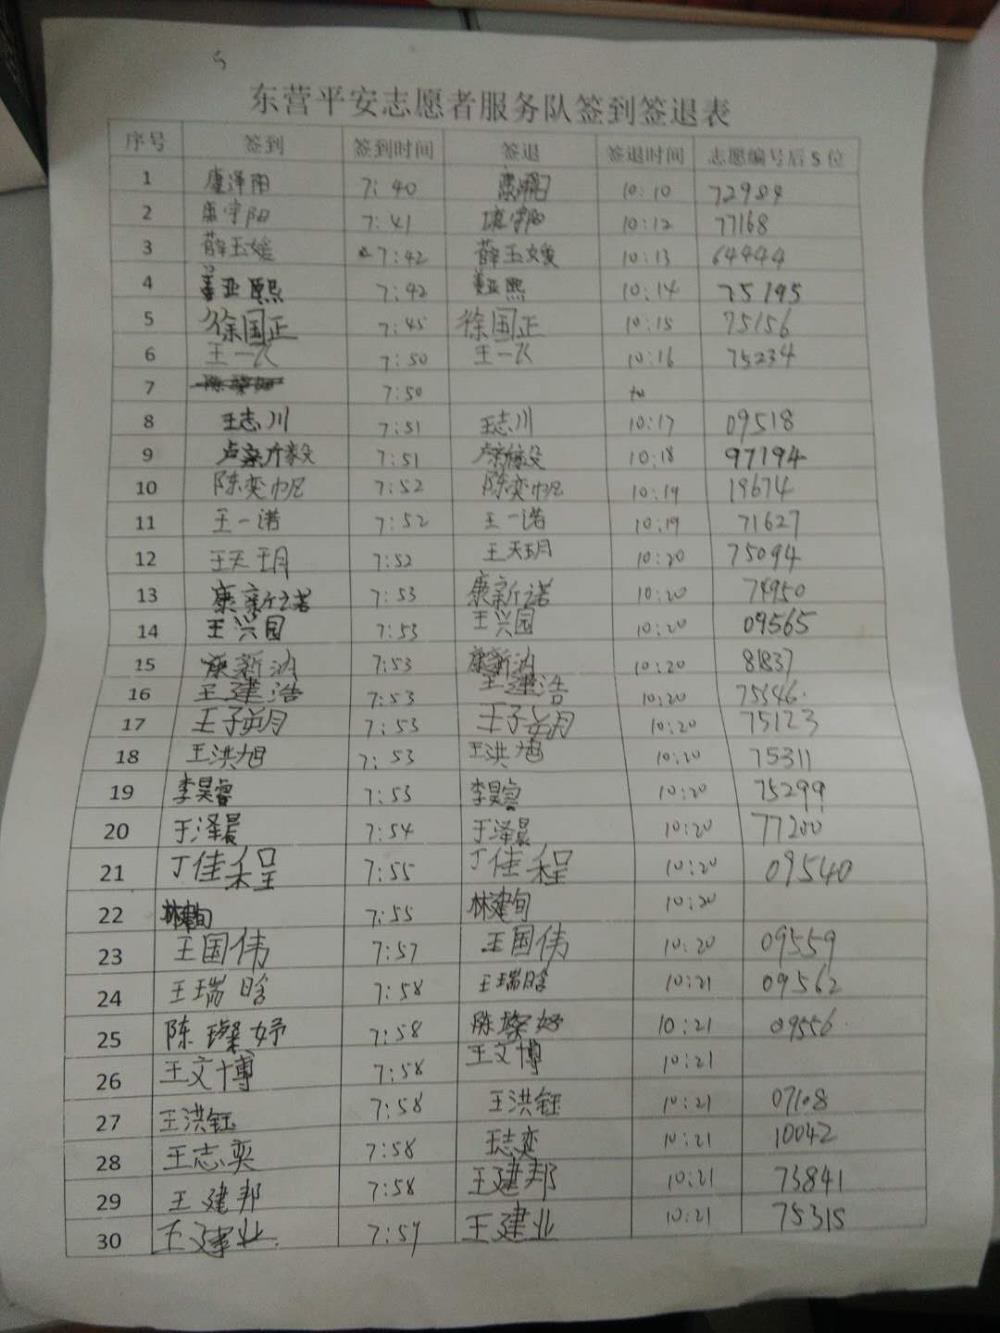 5
东营平安志愿者服务队签到签退表
序号 签到 签到时间 签退 签退时间 志愿编号后5位
1 康泽阳 7:40 10:10 72984
2 康宇阳 7:41 康宇阳 10:12 77168
3 薛玉媛 7:42 薛玉媛 10:13 64444
4 姜亚熙 7:42 姜亚熙 10:14 75195
5 徐国正 7:45 徐国正 10:15 75156
6 王一 7:50 王一 10:16 75234
7 7:50
8 王志川 7:51 王志川 10:17 09518
9 卢毅 7:51 卢 10:18 97194
10 陈奕帆 7:52 陈奕帆 10:19 19674
11 王一诺 7:52 王一诺 10:19 71627
12 王天玥 7:52 王天玥 10:20 75094
13 康新诺 7:53 康新诺 10:20 74950
14 王兴国 7:53 王兴国 10:20 09565
15 康新 7:53 康新 10:20 81837
16 王建浩 7:53 王建浩 10:20 75546
17 王子 7:53 王子 10:20 75123
18 王洪旭 7:53 王洪旭 10:20 75311
19 李昊睿 7:53 李昊睿 10:20 75299
20 于泽晨 7:54 于泽晨 10:20 77200
21 丁佳程 7:55 丁佳程 10:20 09540
22 林建旬 7:55 林建旬 10:20
23 王国伟 7:57 王国伟 10:20 09559
24 王瑞晗 7:58 王瑞晗 10:21 09562
25 陈璨妤 7:58 陈璨妤 10:21 09556
26 王文博 7:58 王文博 10:21
27 王洪钰 7:58 王洪钰 10:21 07108
28 王志奕 7:58 王志奕 10:21 10042
29 王建邦 7:58 王建邦 10:21 73841
30 王建业 7:59 王建业 10:21 75315